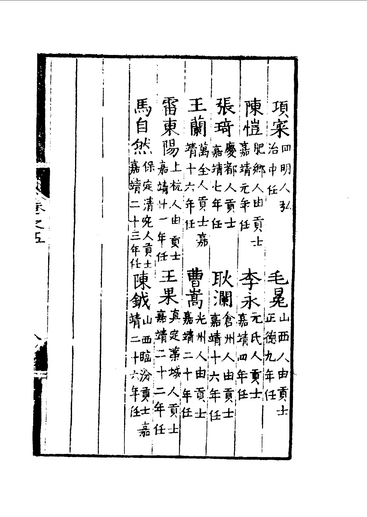 項寀四明人弘治中任 毛晁山西人由貢士正德九年任
陳愷肥鄉人由貢士嘉靖元年任 李永元氏人貢士嘉靖四年任
張琦慶都人貢士嘉靖七年任 耿瀾倉州人由貢士嘉靖十六年任
王蘭萬全人貢士嘉靖十六年任 曹嵩光州人由貢士嘉靖二十年任
雷東陽上杭人由貢士嘉靖廿一年任 王果真定藁城人貢士嘉靖二十二年任
馬自然保定清宛人貢士嘉靖二十三年任 陳鉞山西臨汾貢士嘉靖二十六年任
卷之五
八